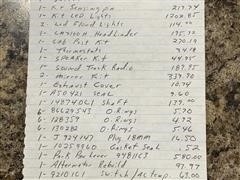 1- Kit Sensing pn 217.74
1- Kit LED Lights 1208.85
2- Led Flood Lights 114.00
1- Headliner 195.72
1- Cab Post Kit 270.19
1- Thermostats
1- Speaker Kit 44.95
1- Sound Track Radio 187.95
2- Mirror Kit 339.90
1- Exhaust Cover 10.74
1- A50421 Seal 9.60
1- 14874061 Shaft 139.00
2- 86629543 O.Rings 5.70
6- 128359 O-Rings 4.72
6- 130282 O-Rings 5.46
1- J924147 Plug 18mm 16.50
1- 10259960 Gasket Seal 1.52
1- Park Paw Lever 9481163 580.00
1- Alternator Rebuild 97.97
1- 9210161 Switch/AC temp. 63.00